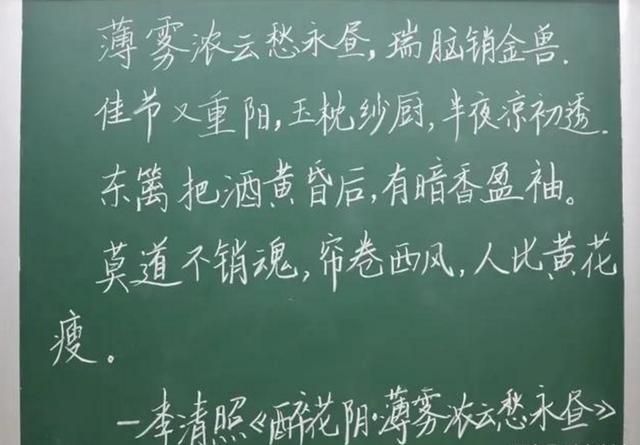 薄雾浓云愁永昼,瑞脑销金兽.
佳节又重阳,玉枕纱厨,半夜凉初透.
东篱把酒黄昏后,有暗香盈袖。
莫道不销魂,帘卷西风,人比黄花
瘦。
—李清照《醉花阴·薄雾浓云愁永昼》